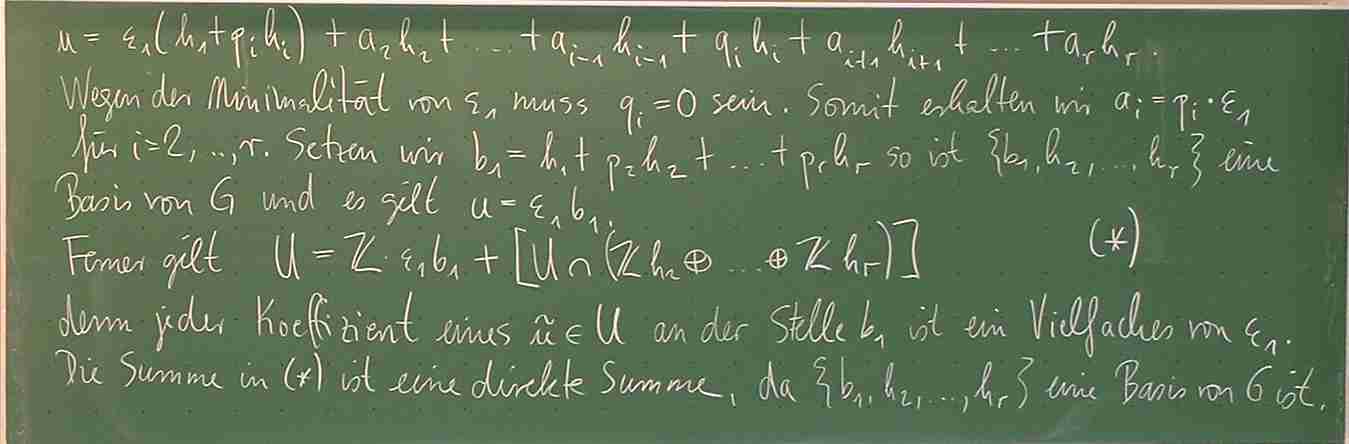 u = ε₁(h₁+qᵢhᵢ) + a₂h₂ + ... + aᵢ₋₁hᵢ₋₁ + qᵢhᵢ + aᵢ₊₁hᵢ₊₁ + ... + aᵣhᵣ.
Wegen der Minimalität von ε₁ muss qᵢ=0 sein. Somit erhalten wir aᵢ=pᵢ·ε₁
für i=2,..,r. Setzen wir b₁=h₁+p₂h₂+...+pᵣhᵣ so ist {b₁,h₂,...,hᵣ} eine
Basis von G und es gilt u=ε₁b₁.
Ferner gilt U = ℤ·ε₁b₁ + [U∩(ℤh₂⊕...⊕ℤhᵣ)] (*)
denn jeder Koeffizient eines ũ∈U an der Stelle b₁ ist ein Vielfaches von ε₁.
Die Summe in (*) ist eine direkte Summe, da {b₁,h₂,...,hᵣ} eine Basis von G ist.